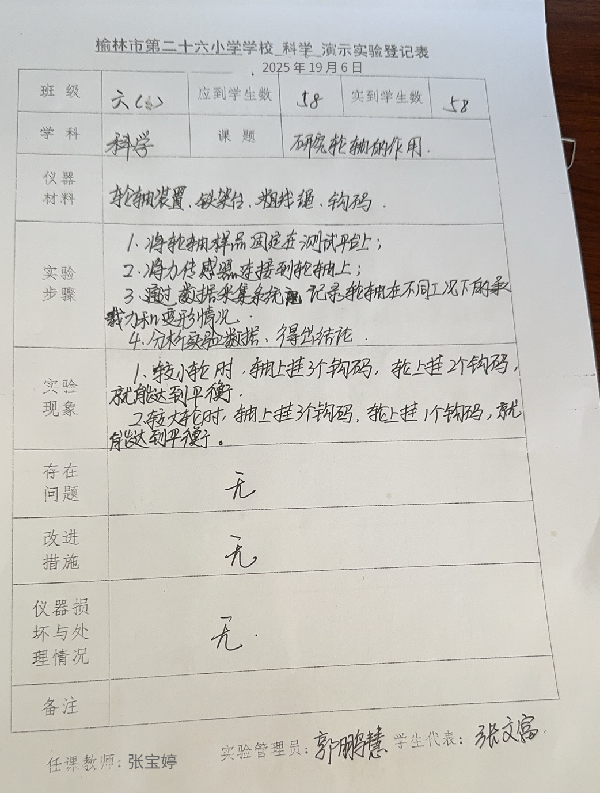 榆林市第二十六小学学校 科学 演示实验登记表
2025年19月6日
班级 六 应到学生数 58 实到学生数 58
学科 科学 课题 研究轮轴的作用.
仪器材料 轮轴装置、铁架台、粗线绳、钩码.
实验步骤 1.将轮轴样品固定在测试平台上;
2.将力传感器连接到轮轴上;
3.通过数据采集系统 记录轮轴在不同工况下的承
载力和变形情况.
4.分析实验数据、得出结论.
实验现象 1.较小轮时,轴上挂3个钩码,轮上挂2个钩码,
就能达到平衡.
2.较大轮时,轴上挂3个钩码,轮上挂1个钩码,就
能达到平衡。
存在问题 无
改进措施 无.
仪器损坏与处理情况 无.
备注
任课教师:张宝婷 实验管理员:郭鹏慧 学生代表:张文富